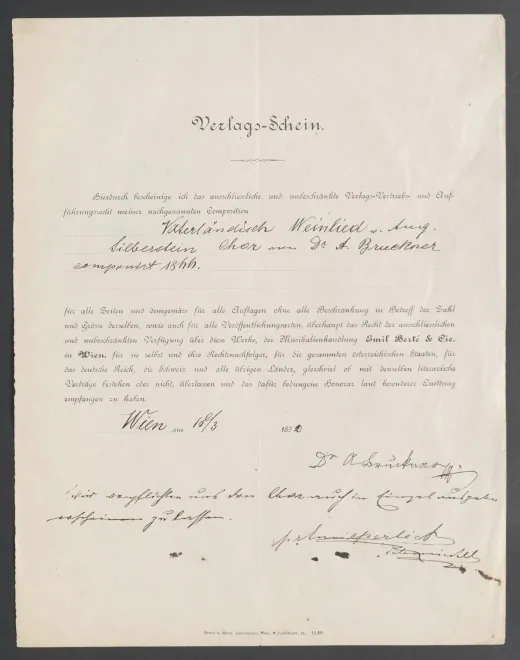 Verlags-Schein.
Hierdurch bescheinige ich das ausschliessliche und unbeschränkte Verlags-Vertriebs- und Auf-
führungsrecht meiner nachgenannten Composition
Vaterländisch Weinlied v. Aug.
Silberstein Chor von Dr A. Bruckner
componirt 1866.
für alle Zeiten und demgemäss für alle Auflagen ohne alle Beschränkung in Betreff der Zahl
und Grösse derselben, sowie auch für alle Veröffentlichungsarten, überhaupt das Recht der ausschliesslichen
und unbeschränkten Verfügung über diese Werke, der Musikalienhandlung Emil Berté & Cie.
in Wien, für sie selbst und ihre Rechtsnachfolger, für die gesammten österreichischen Staaten, für
das deutsche Reich, die Schweiz und alle übrigen Länder, gleichviel ob mit denselben literarische
Verträge bestehen oder nicht, überlassen und das dafür bedungene Honorar laut besonderer Quittung
empfangen zu haben.
Wien am 18/3 1892
Dr A Bruckner
Wir verpflichten uns den Chor auch in Einzelausgaben
erscheinen zu lassen.